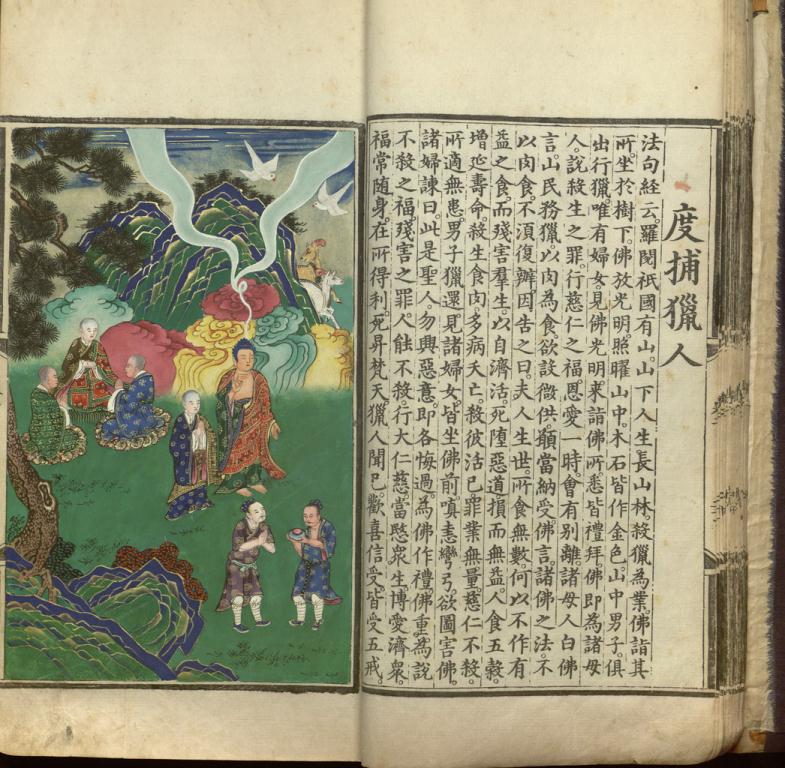 度捕獵人
法句経云。羅閱祇國有山。山下人生長山林。殺獵為業。佛詣其
所。坐於樹下。佛放光明。照曜山中。木石皆作金色。山中男子。俱
出行獵。唯有婦女。見佛光明。来詣佛所。悉皆禮拜。佛即為諸母
人。說殺生之罪。行慈仁之福。恩愛一時。會有別離。諸母人白佛
言。山民務獵。以肉為食。欲設微供。願當納受。佛言。諸佛之法。不
以肉食。不須復辦。因告之曰。夫人生世。所食無數。何以不作有
益之食。而殘害羣生。以自濟活。死墮惡道。損而無益。人食五穀。
增延壽命。殺生食肉。多病夭亡。殺彼活己。罪業無量。慈仁不殺。
所適無患。男子獵還。見諸婦女。皆坐佛前。嗔恚彎弓。欲圖害佛。
諸婦諫曰。此是聖人。勿興惡意。即各悔過。為佛作禮。佛重為說
不殺之福。殘害之罪。人能不殺。行大仁慈。當愍衆生。博愛濟衆。
福常随身。在所得利。死昇梵天。獵人聞已。歡喜信受。皆受五戒。